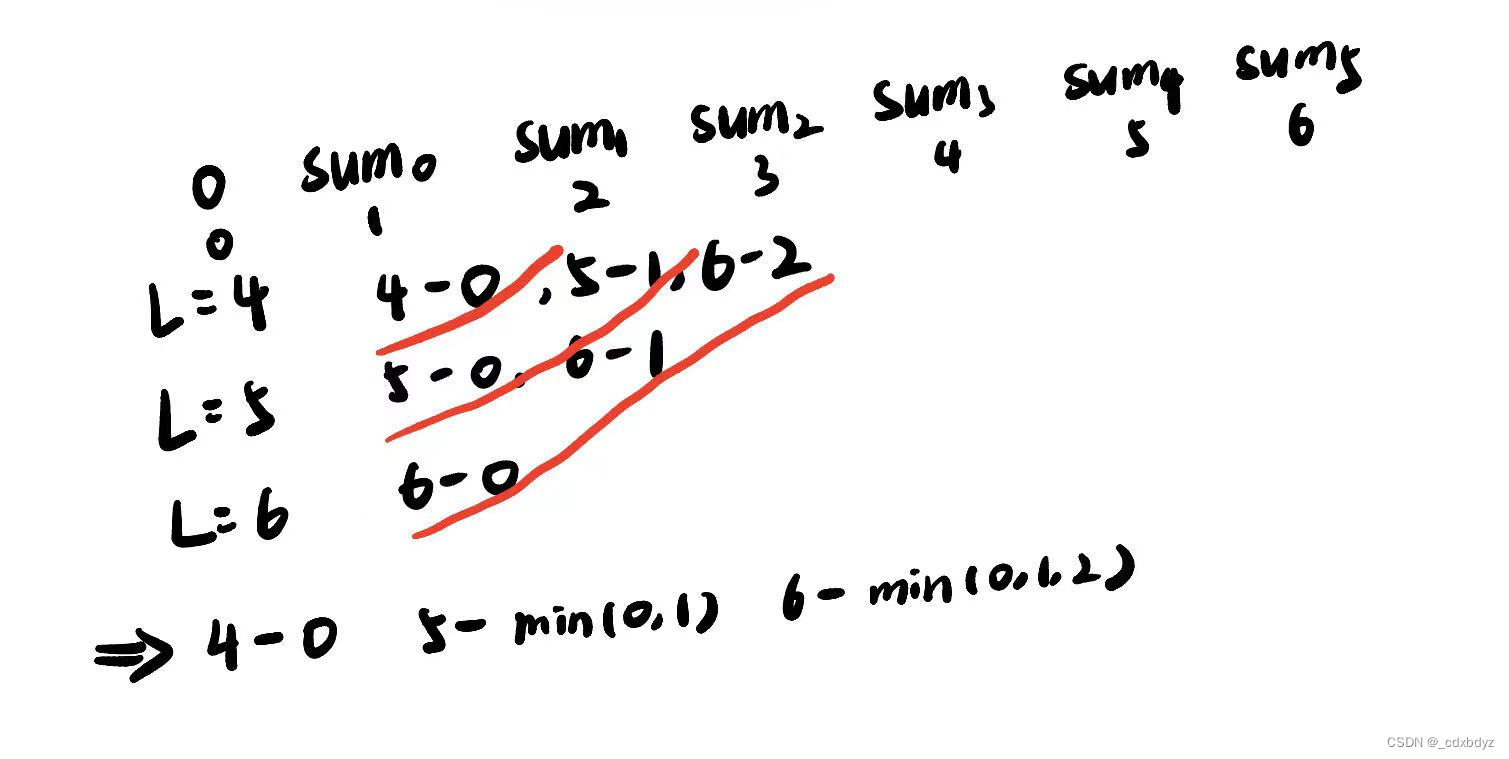 0 sum0 sum1 sum2 sum3 sum4 sum5
0 1 2 3 4 5 6
L=4 4-0, 5-1, 6-2
L=5 5-0, 6-1
L=6 6-0
⇒ 4-0 5-min(0,1) 6-min(0,1,2)
CSDN @_cdxbdyz